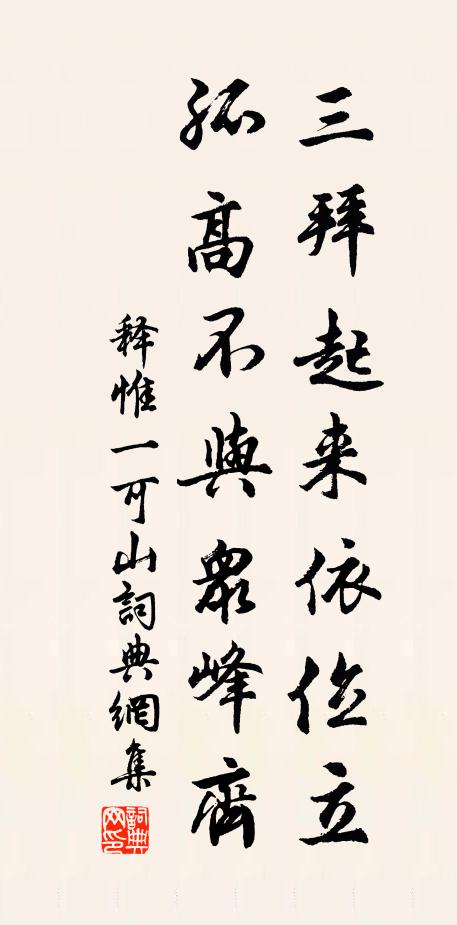 三拜起来依位立
孤高不與衆峰齊
释惟一可山詞典網集
詞典网印